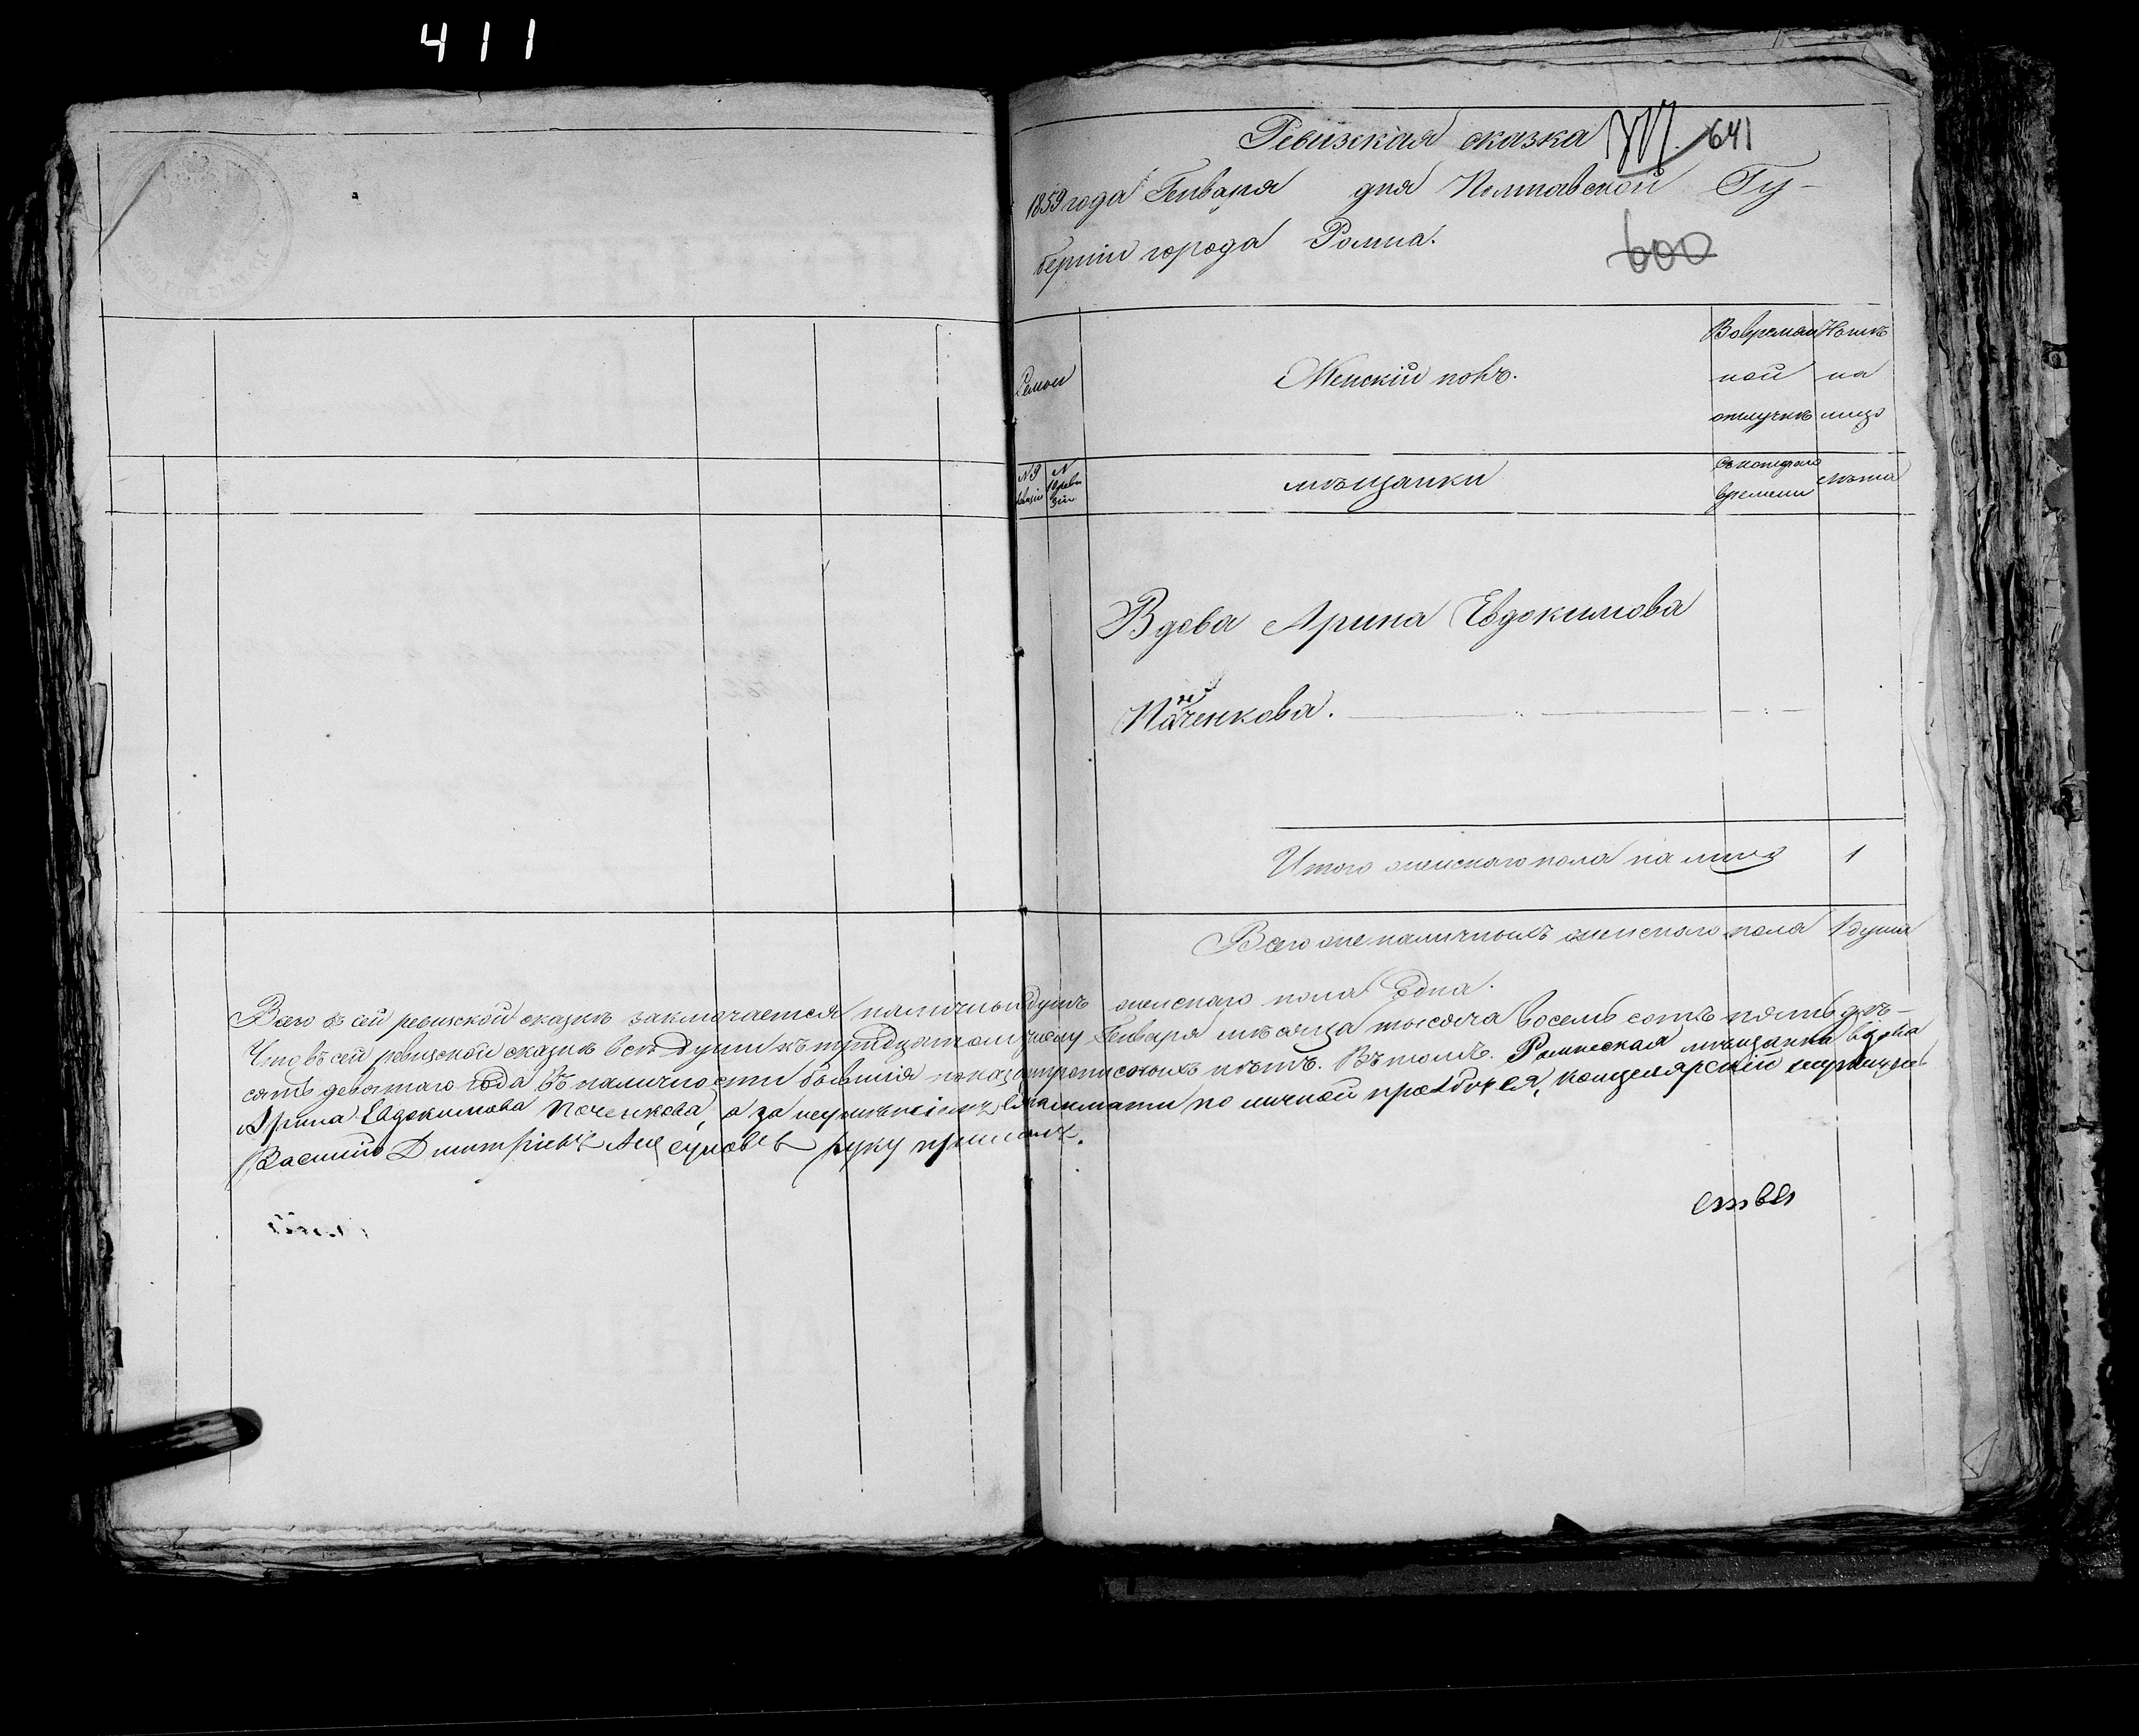 411
Ревизская сказка 641
1859 года Генваря дня Полтавской Гу-
берніи города Ромна.
600
Семьи
Женскій полъ.
Во времен
ной
отлучкѣ
Нынѣ
на
лицо
N 9 ревизіи
N 10 реви зіи
мѣщанки
Съ котораго
времени
лѣта
Вдова Арина Евдокимова
Паченкова.
Итого женскаго пола на лицо 1
Всего же наличныхъ женскаго пола 1 душа
Всего въ сей ревизской сказкѣ заключается наличныхъ душъ женскаго пола Една.
Что въ сей ревизской сказкѣ всѣ души къ тридцатому числу Генваря мѣсяца тысяча восемь сотъ пять деся-
сятъ девятаго года въ наличности бывшія показаны прописныхъ нѣтъ. Въ томъ. Роменская мѣщанка вдова
Арина Евдокимова Поченкова, а за неумѣніемъ грамматы по личной прозьбѣ ея, канцелярскій служитель
Василий Дмитріевъ руку приложилъ.